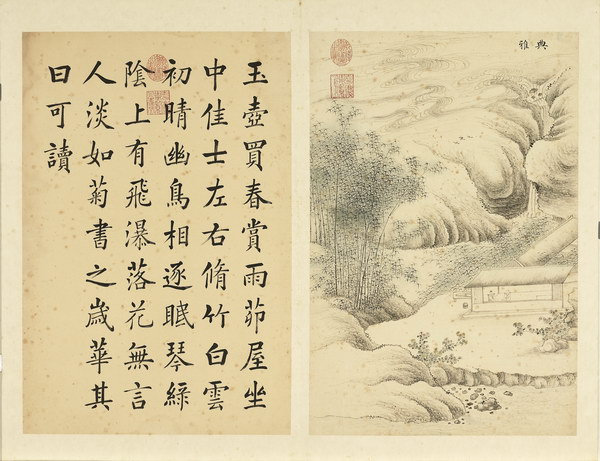 典雅
玉壺買春賞雨茆屋坐
中佳士左右脩竹白雲
初晴幽鳥相逐眠琴綠
陰上有飛瀑落花無言
人淡如菊書之歲華其
曰可讀